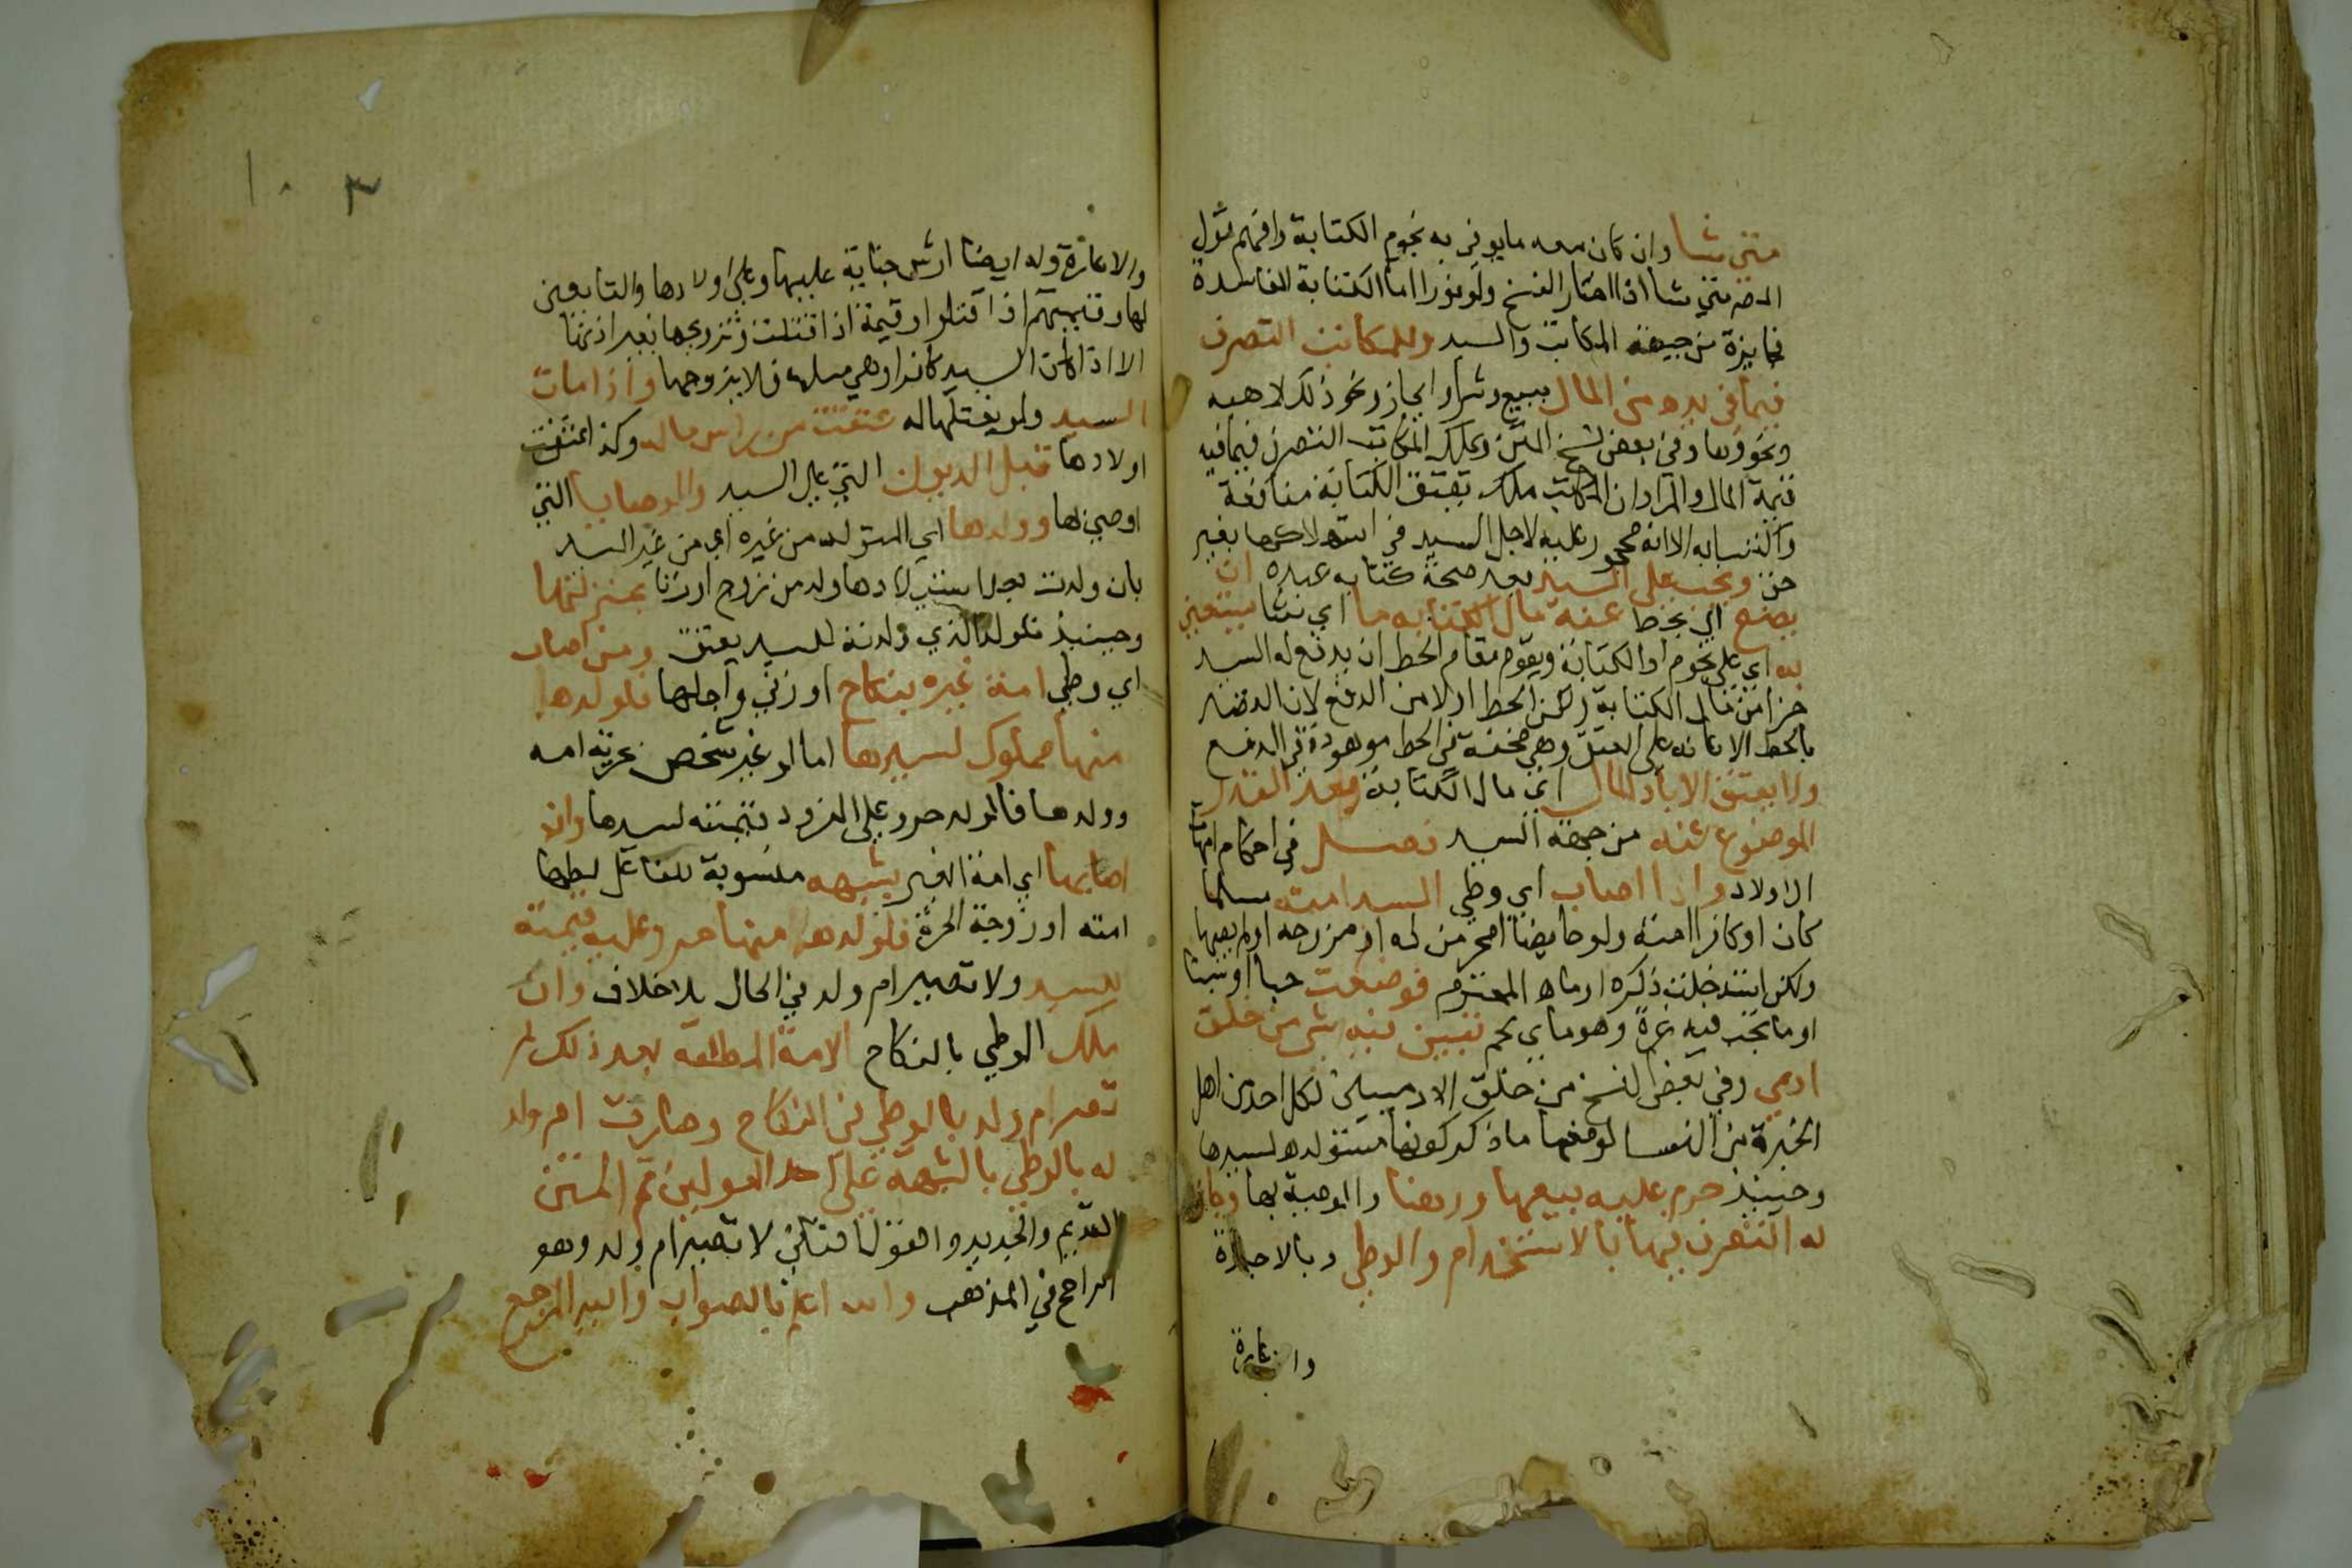 متى شا وان كان معه ما يوفي به نجوم الكتابة وافهم قول
المص متى شا ان اختار الفسخ ولو فورا اما الكتابة الفاسدة
فجايزة من جهة المكاتب والسيد وللمكاتب التصرف
فيما في يده من المال ببيع وشرا وايجار ونحو ذلك لا هبه
ونحوها وفي بعض نسخ المتن ويملك المكاتب التصرف فيما فيه
تنمية المال والمراد ان المكاتب يملك بعقد الكتابة منافعه
واكتسابه الا انه محجور عليه لاجل السيد في استهلاكها بغير
حق ويجب على السيد بعد صحة كتابه عبده ان
يضع اي يحط عنه مال الكتابه ما اي شيا يستعين
به اي على نجوم اد الكتابة ويقوم مقام الحط ان يدفع له السيد
جزا من مال الكتابة ولكن الحط اولا من الدفع لان القصد
بالحط الاعانه على العتق وهي محققة في الحط موهومة في الدفع
ولا يعتق الا باد المال اي مال الكتابة بعد القدر
الموضوع عنه من جهة السيد فصل في احكام امهات
الاولاد واذا اصاب اي وطي السيد امته مسلما
كان او كافرا امته ولو حايضا او محرما له او مزوجه او لم يصبها
ولكن استدخلت ذكره او ماه المحترم فوضعت حيا او ميتا
او ما يجب فيه غرة وهو ما اي لحم تبين فيه شي من خلق
ادمي وفي بعض النسخ من خلق الادميين لكل احد من اهل
الخبرة من النسا لو ضعها ما ذكر كونها مستولده لسيدها
وحينيذ حرم عليه بيعها ورهنا والوصية بها وجاز
له التصرف فيها بالاستخدام والوطي وبالاجارة
والاعارة
١٠٣
والاعارة وله ايضا ارش جناية عليها وعلى اولادها والتابعين
لها وقيمتهم اذا قتلوا وقيمة اذا قتلت وتزويجها بغير اذنها
الا اذا كان السيد كافرا وهي مسلمه فلا يزوجها واذا مات
السيد ولو بقتلها له عتقت من راس ماله وكذا عتقت
اولادها قبل الديون التي على السيد والوصايا التي
اوصي بها وولدها اي المستولده من غيره اي من غير السيد
بان ولدت بعد استيلادها ولد من زوج او زنا بمنزلتها
وحينيذ فالولد الذي ولدته للسيد يعتق ومن اصاب
اي وطي امة غيره بنكاح او زني واحبلها فلولدها
منها مملوك لسيدها اما لو غر شخص بحرية امه
وولدها فالولد حر وعلى المغرور قيمته لسيدها وان
اصابها اي امة الغير بشبهه منسوبة للفاعل لظنها
امته او زوجة الحرة فلولدها منها حر وعليه قيمته
للسيد ولا تصير ام ولد في الحال بلا خلاف وان
ملك الوطي بالنكاح الامة المطلقه بعد ذلك لم
تصر ام ولد بالوطي في النكاح وصارت ام ولد
له بالوطي بالشبهة على احد القولين تم المتن
القديم والجديد والقول الثاني لا تصير ام ولد وهو
الراجح في المذهب والله اعلم بالصواب واليه المرجع